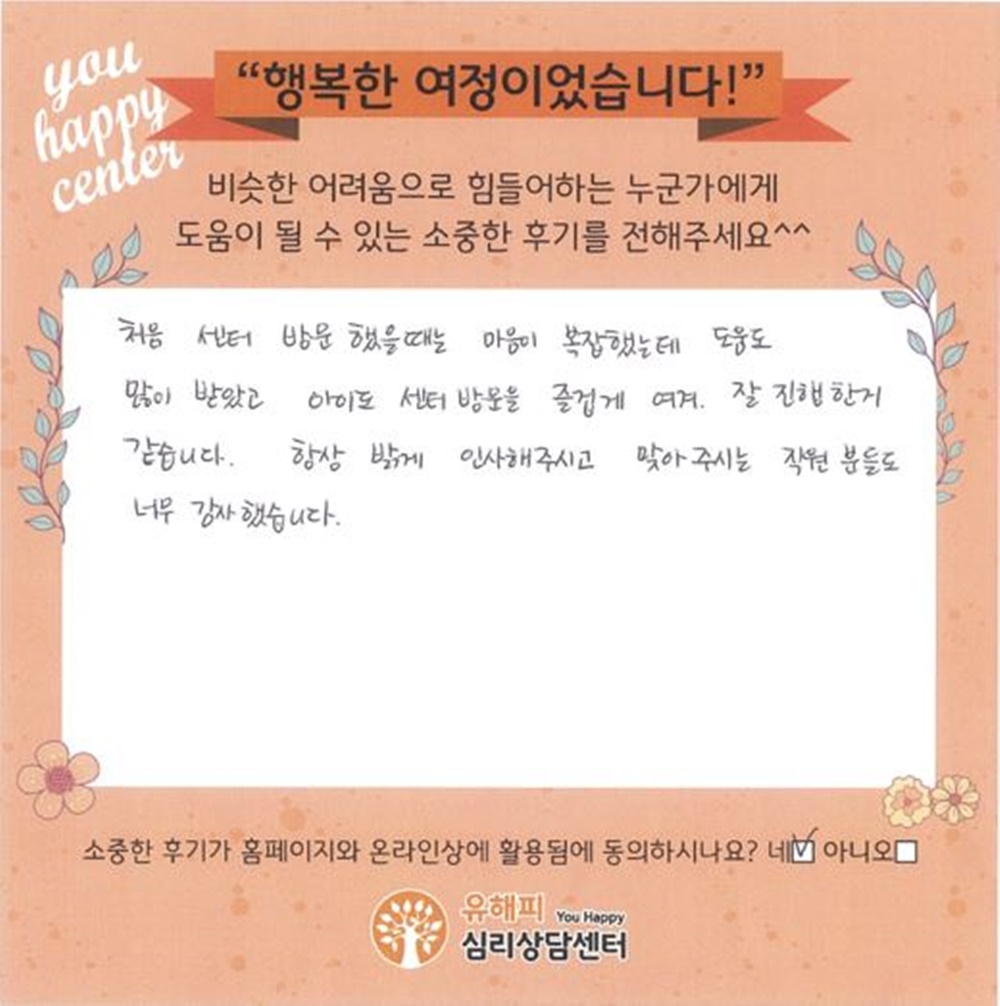 you
happy
center
“행복한 여정이었습니다!”
비슷한 어려움으로 힘들어하는 누군가에게
도움이 될 수 있는 소중한 후기를 전해주세요^^
처음 센터 방문 했을때는 마음이 복잡했는데 도움도
많이 받았고 아이도 센터 방문을 즐겁게 여겨. 잘 진행한거
같습니다. 항상 밝게 인사해주시고 맞아주시는 직원 분들도
너무 감사했습니다.
소중한 후기가 홈페이지와 온라인상에 활용됨에 동의하시나요? 네☑ 아니오☐
유해피 You Happy
심리상담센터